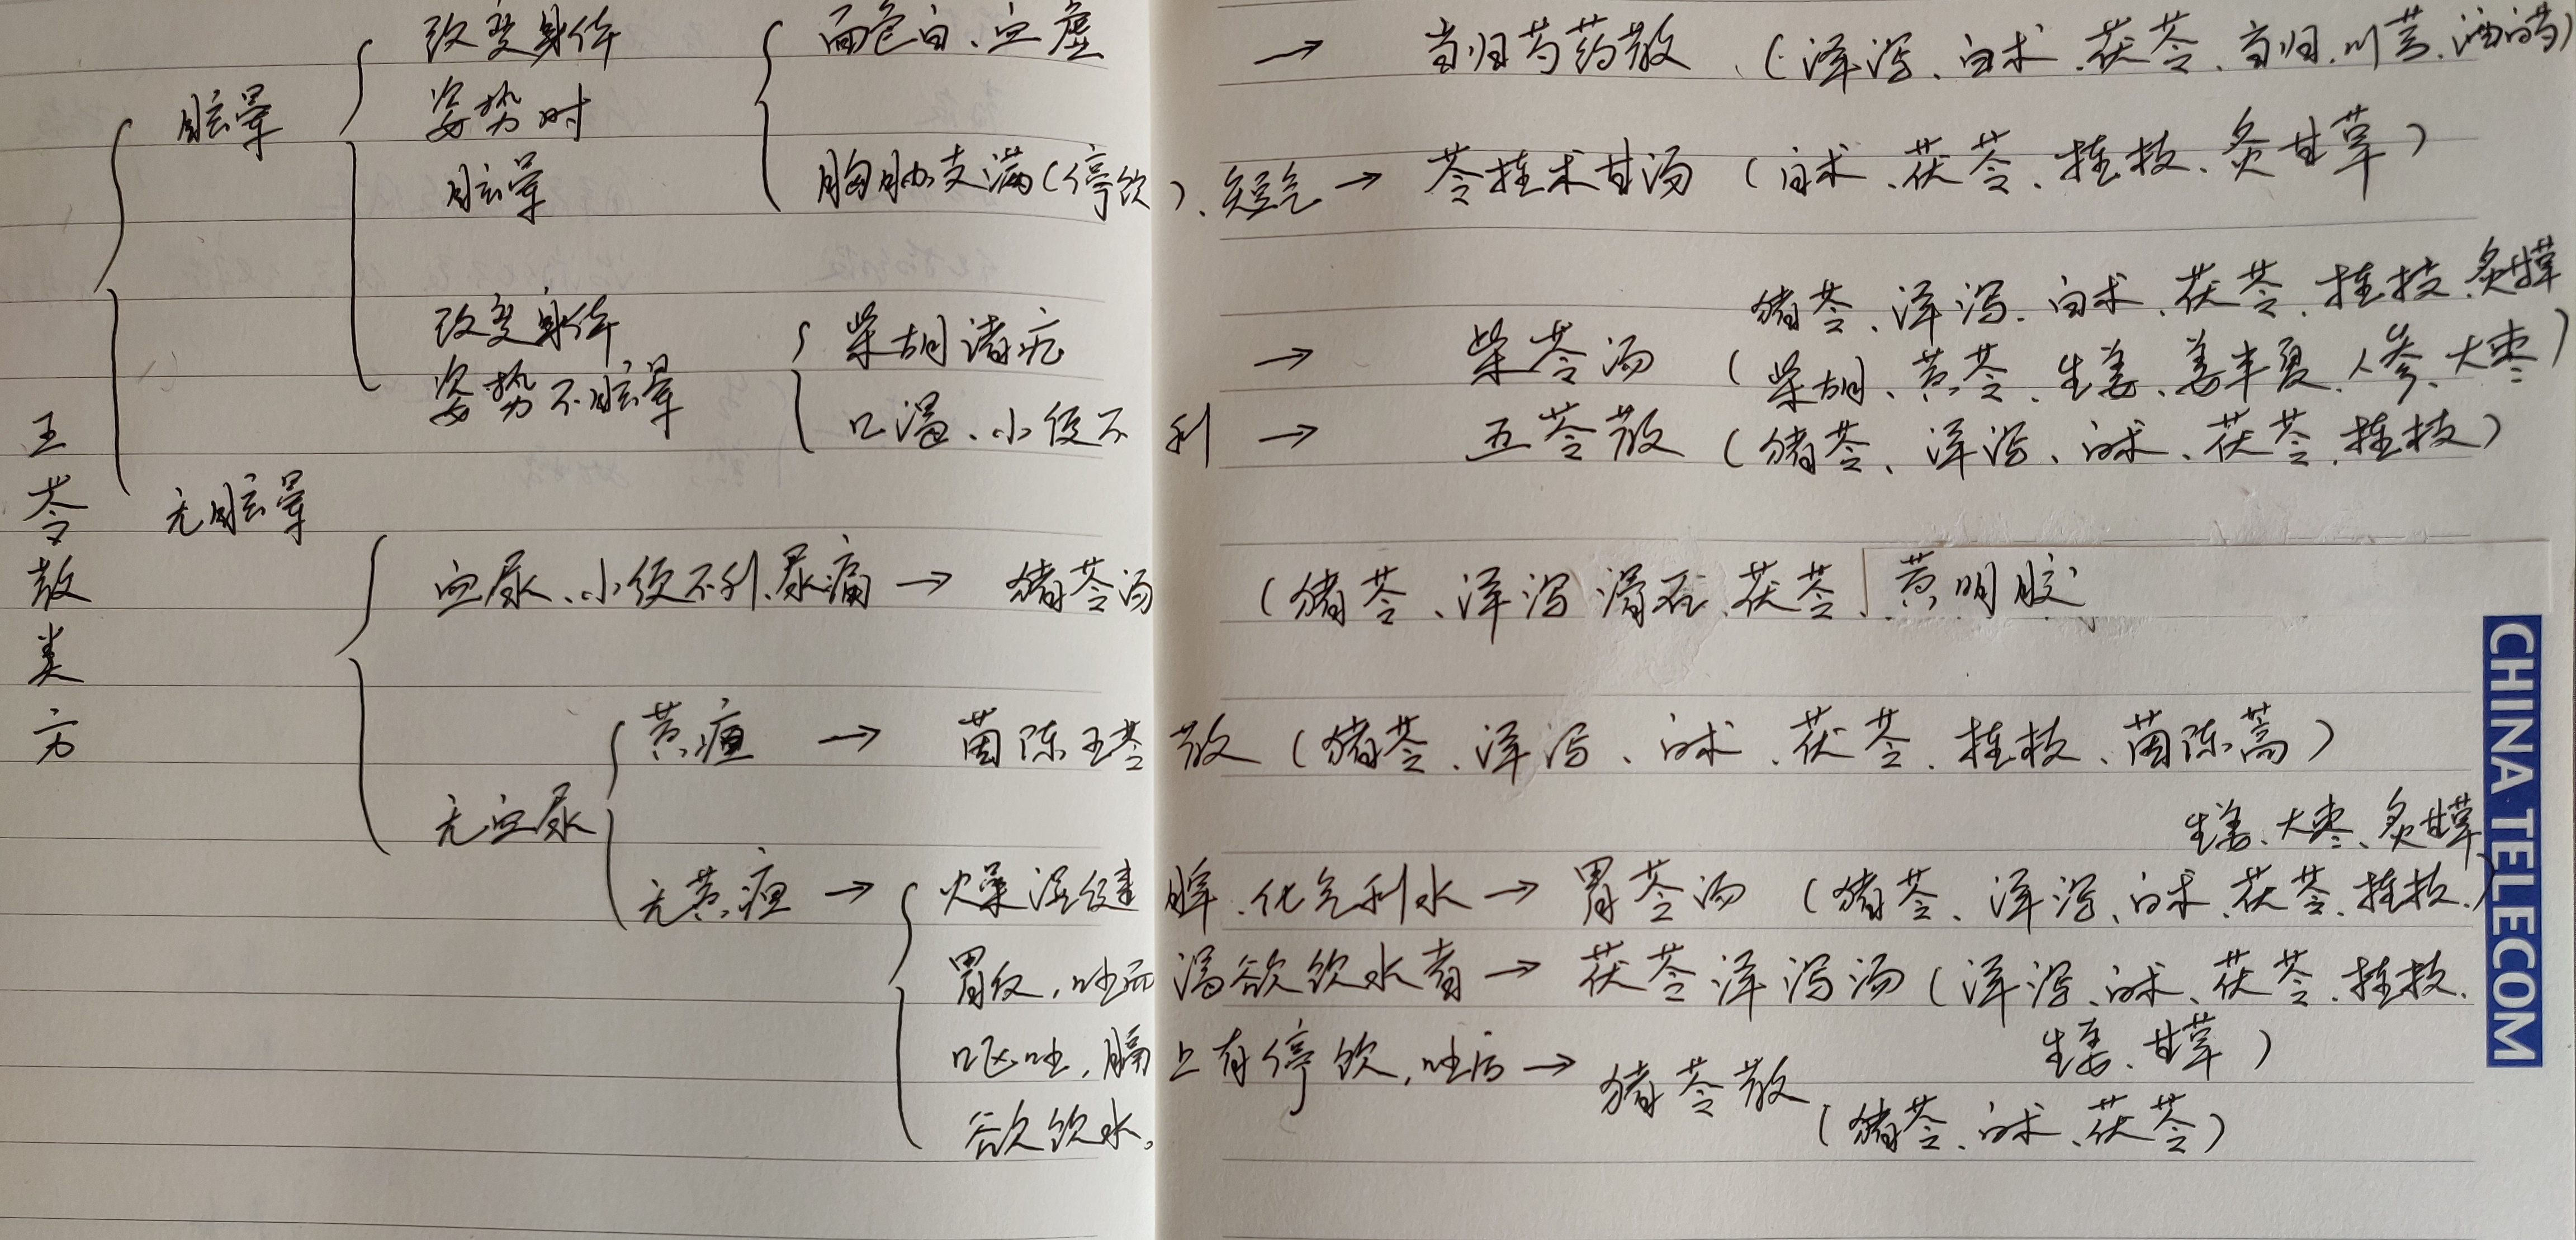 五苓散类方
眩晕
改变身体
姿势时
眩晕
面色白、血虚 → 当归芍药散 (泽泻、白术、茯苓、当归、川芎、酒芍)
胸胁支满(停饮)、短气 → 苓桂术甘汤 (白术、茯苓、桂枝、炙甘草)
改变身体
姿势不眩晕
柴胡诸症 → 柴苓汤
猪苓、泽泻、白术、茯苓、桂枝、炙甘草
(柴胡、黄芩、生姜、姜半夏、人参、大枣)
口渴、小便不利 → 五苓散 (猪苓、泽泻、白术、茯苓、桂枝)
无眩晕
血尿、小便不利、尿痛 → 猪苓汤 (猪苓、泽泻 滑石、茯苓、黄明胶
无血尿
黄疸 → 茵陈五苓散 (猪苓、泽泻、白术、茯苓、桂枝、茵陈蒿)
无黄疸 →
燥湿健脾、化气利水 → 胃苓汤 (猪苓、泽泻、白术、茯苓、桂枝、)
生姜、大枣、炙甘草
胃反,吐而渴欲饮水者 → 茯苓泽泻汤 (泽泻、白术、茯苓、桂枝、
生姜、甘草)
呕吐,膈上有停饮,吐后 → 猪苓散
欲饮水。
(猪苓、白术、茯苓)
CHINA TELECOM